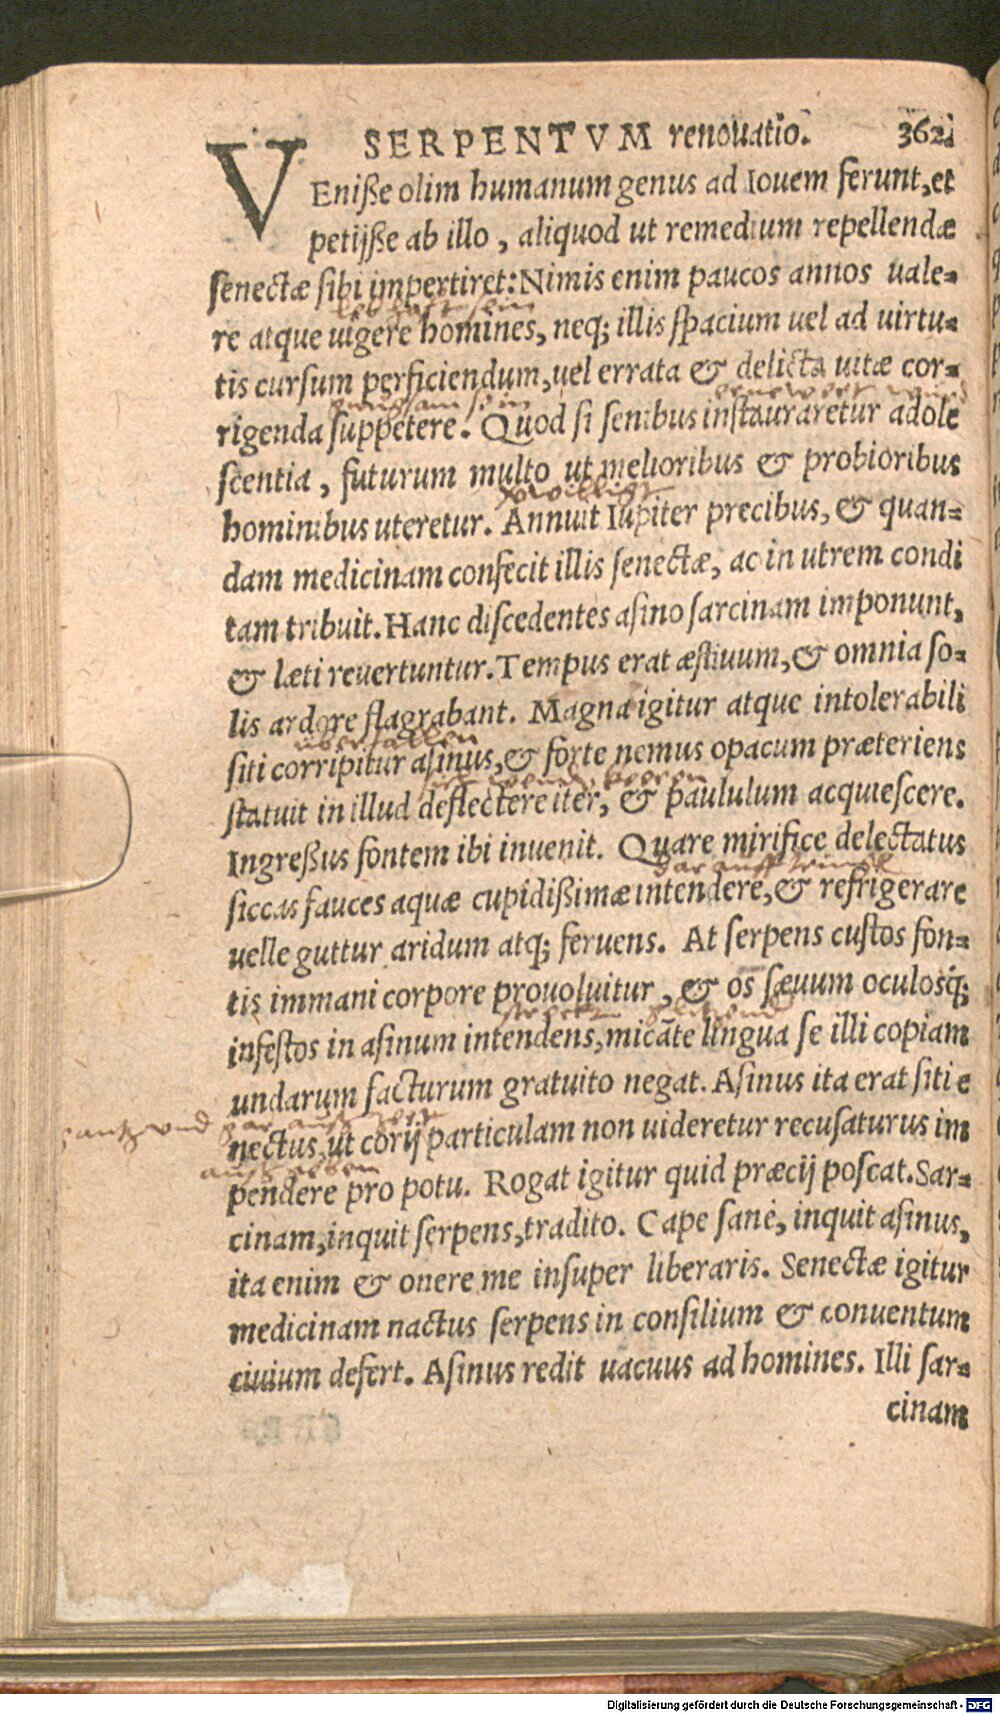 SERPENTVM renouatio. 362
VEniße olim humanum genus ad Iouem ferunt, et
petijße ab illo, aliquod ut remedium repellendæ
senectæ sibi impertiret: Nimis enim paucos annos uale-
re atque uigere homines, neq; illis spacium uel ad uirtu-
tis cursum perficiendum, uel errata & delicta uitæ cor-
rigenda suppetere. Quod si senibus instauraretur adole
scentia, futurum multo ut melioribus & probioribus
zuwilligt
hominibus uteretur. Annuit Iupiter precibus, & quan-
dam medicinam confecit illis senectæ, ac in utrem condi
tam tribuit. Hanc discedentes asino sarcinam imponunt,
& læti reuertuntur. Tempus erat æstiuum, & omnia so-
lis ardore flagrabant. Magna igitur atque intolerabili
überfallen
siti corripitur asinus, & forte nemus opacum præteriens
statuit in illud deflectere iter, & paululum acquiescere.
Ingreßus fontem ibi inuenit. Quare mirifice delectatus
siccas fauces aquæ cupidißimæ intendere, & refrigerare
uelle guttur aridum atq; feruens. At serpens custos fon-
tis immani corpore prouoluitur, & os sæuum oculosq́;
infestos in asinum intendens, micāte lingua se illi copiam
undarum facturum gratuito negat. Asinus ita erat siti e
nectus, ut corij particulam non uideretur recusaturus im
pendere pro potu. Rogat igitur quid præcij poscat. Sar-
cinam, inquit serpens, tradito. Cape sanè, inquit asinus,
ita enim & onere me insuper liberaris. Senectæ igitur
medicinam nactus serpens in consilium & conuentum
ciuium defert. Asinus redit uacuus ad homines. Illi sar-
cinam
Digitalisierung gefördert durch die Deutsche Forschungsgemeinschaft - DFG